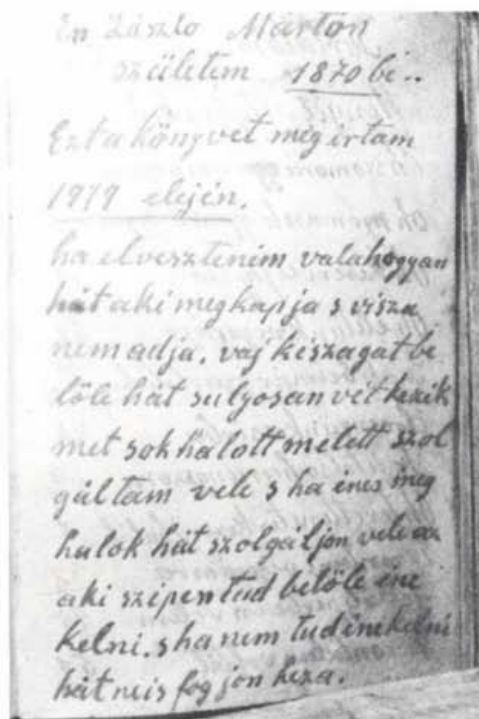 Én László Márton
születem 1870 bé..
Ezt a könyvet meg irtam
1919 elején.
ha elveszteném valahogyan
hát aki megkapja s visza
nem adja, vaj kiszagat be
löle hát sulyosan vétkezik
met sok halott melett szol
gáltam vele s ha énes meg
halok hát szolgáljon vele az
aki szépen tud belöle éne
kelni. s ha nem tud énekelni
hát neis fogjon heza.